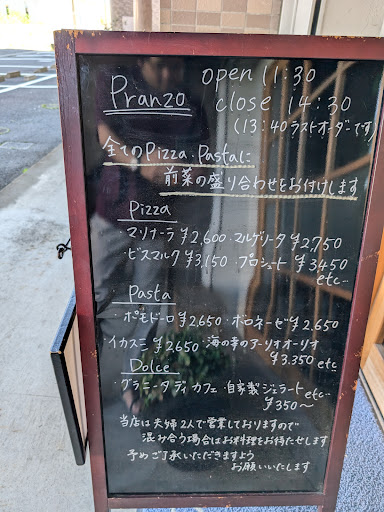 Pranzo
open 11:30
close 14:30
(13:40ラストオーダーです)
全てのPizza・Pastaに
前菜の盛り合わせをお付けします
Pizza
・マリナーラ¥2,600・マルゲリータ¥2750
・ビスマルク¥3,150・プロシュート¥3450
etc…
Pasta
・ポモドーロ¥2650・ボロネーゼ¥2.650
イカスミ¥2650・海の幸のアーリオオーリオ
¥3.350 etc
Dolce
・グラニータ ディ カフェ・自家製ジェラート etc…
¥350〜
当店は夫婦2人で営業しておりますので
混み合う場合はお料理をお待たせします
予めご了承いただきますよう
お願いいたします